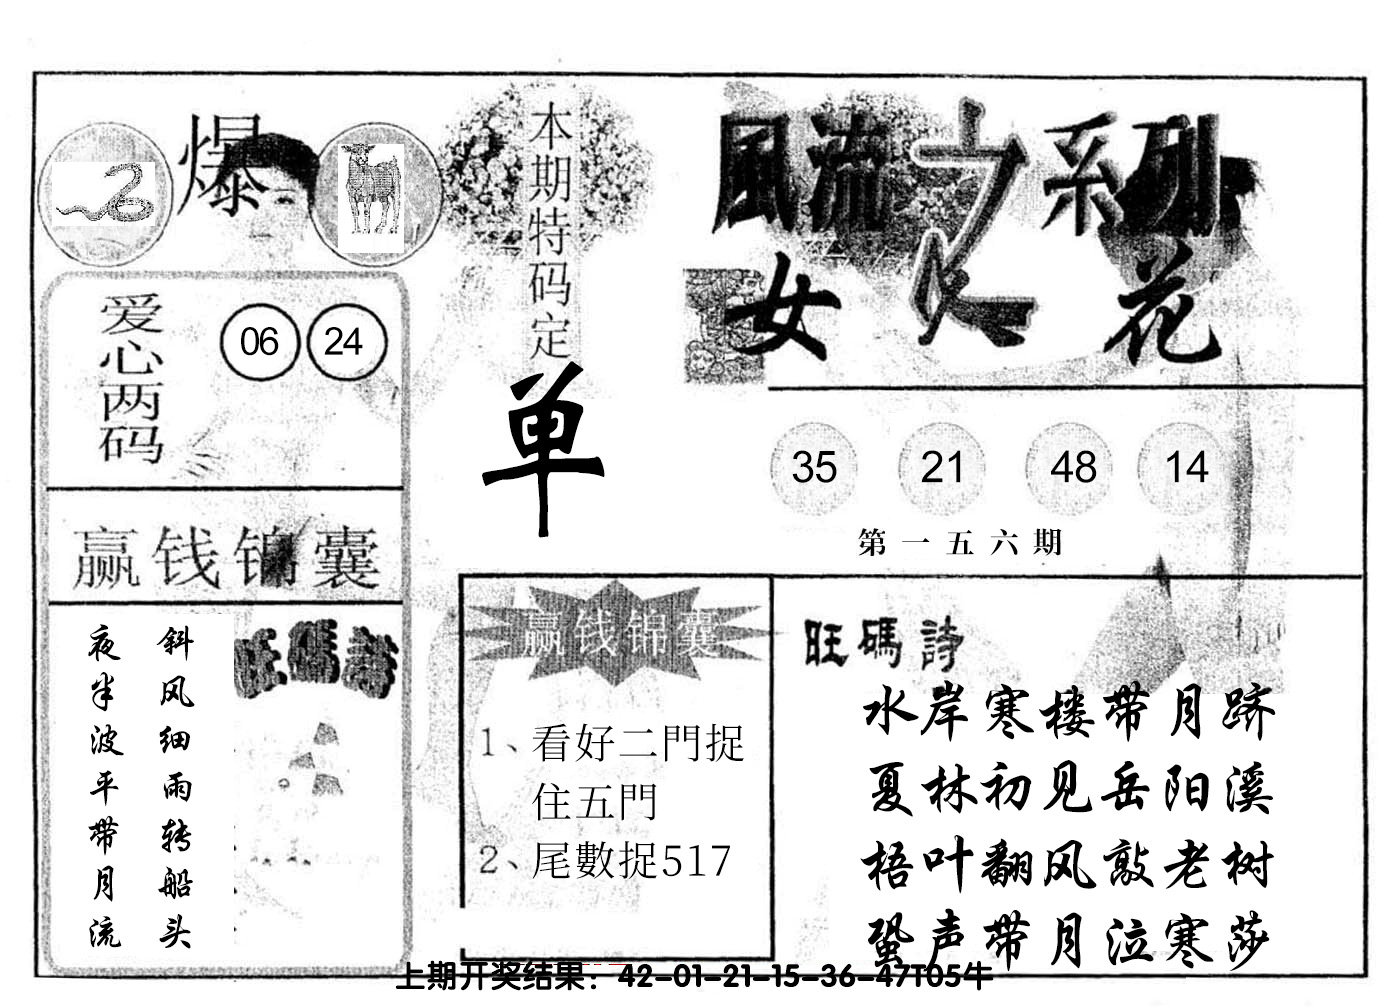 爆
本期特码定
单
風流之系列
女人花
爱心两码
06 24
35 21 48 14
第一五六期
赢钱锦囊
旺碼詩
斜风细雨转船头
夜半波平带月流
赢钱锦囊
1、看好二門捉
住五門
2、尾數捉517
旺碼詩
水岸寒楼带月跻
夏林初见岳阳溪
梧叶翻风敲老树
蛩声带月泣寒莎
上期开奖结果：42-01-21-15-36-47T05牛